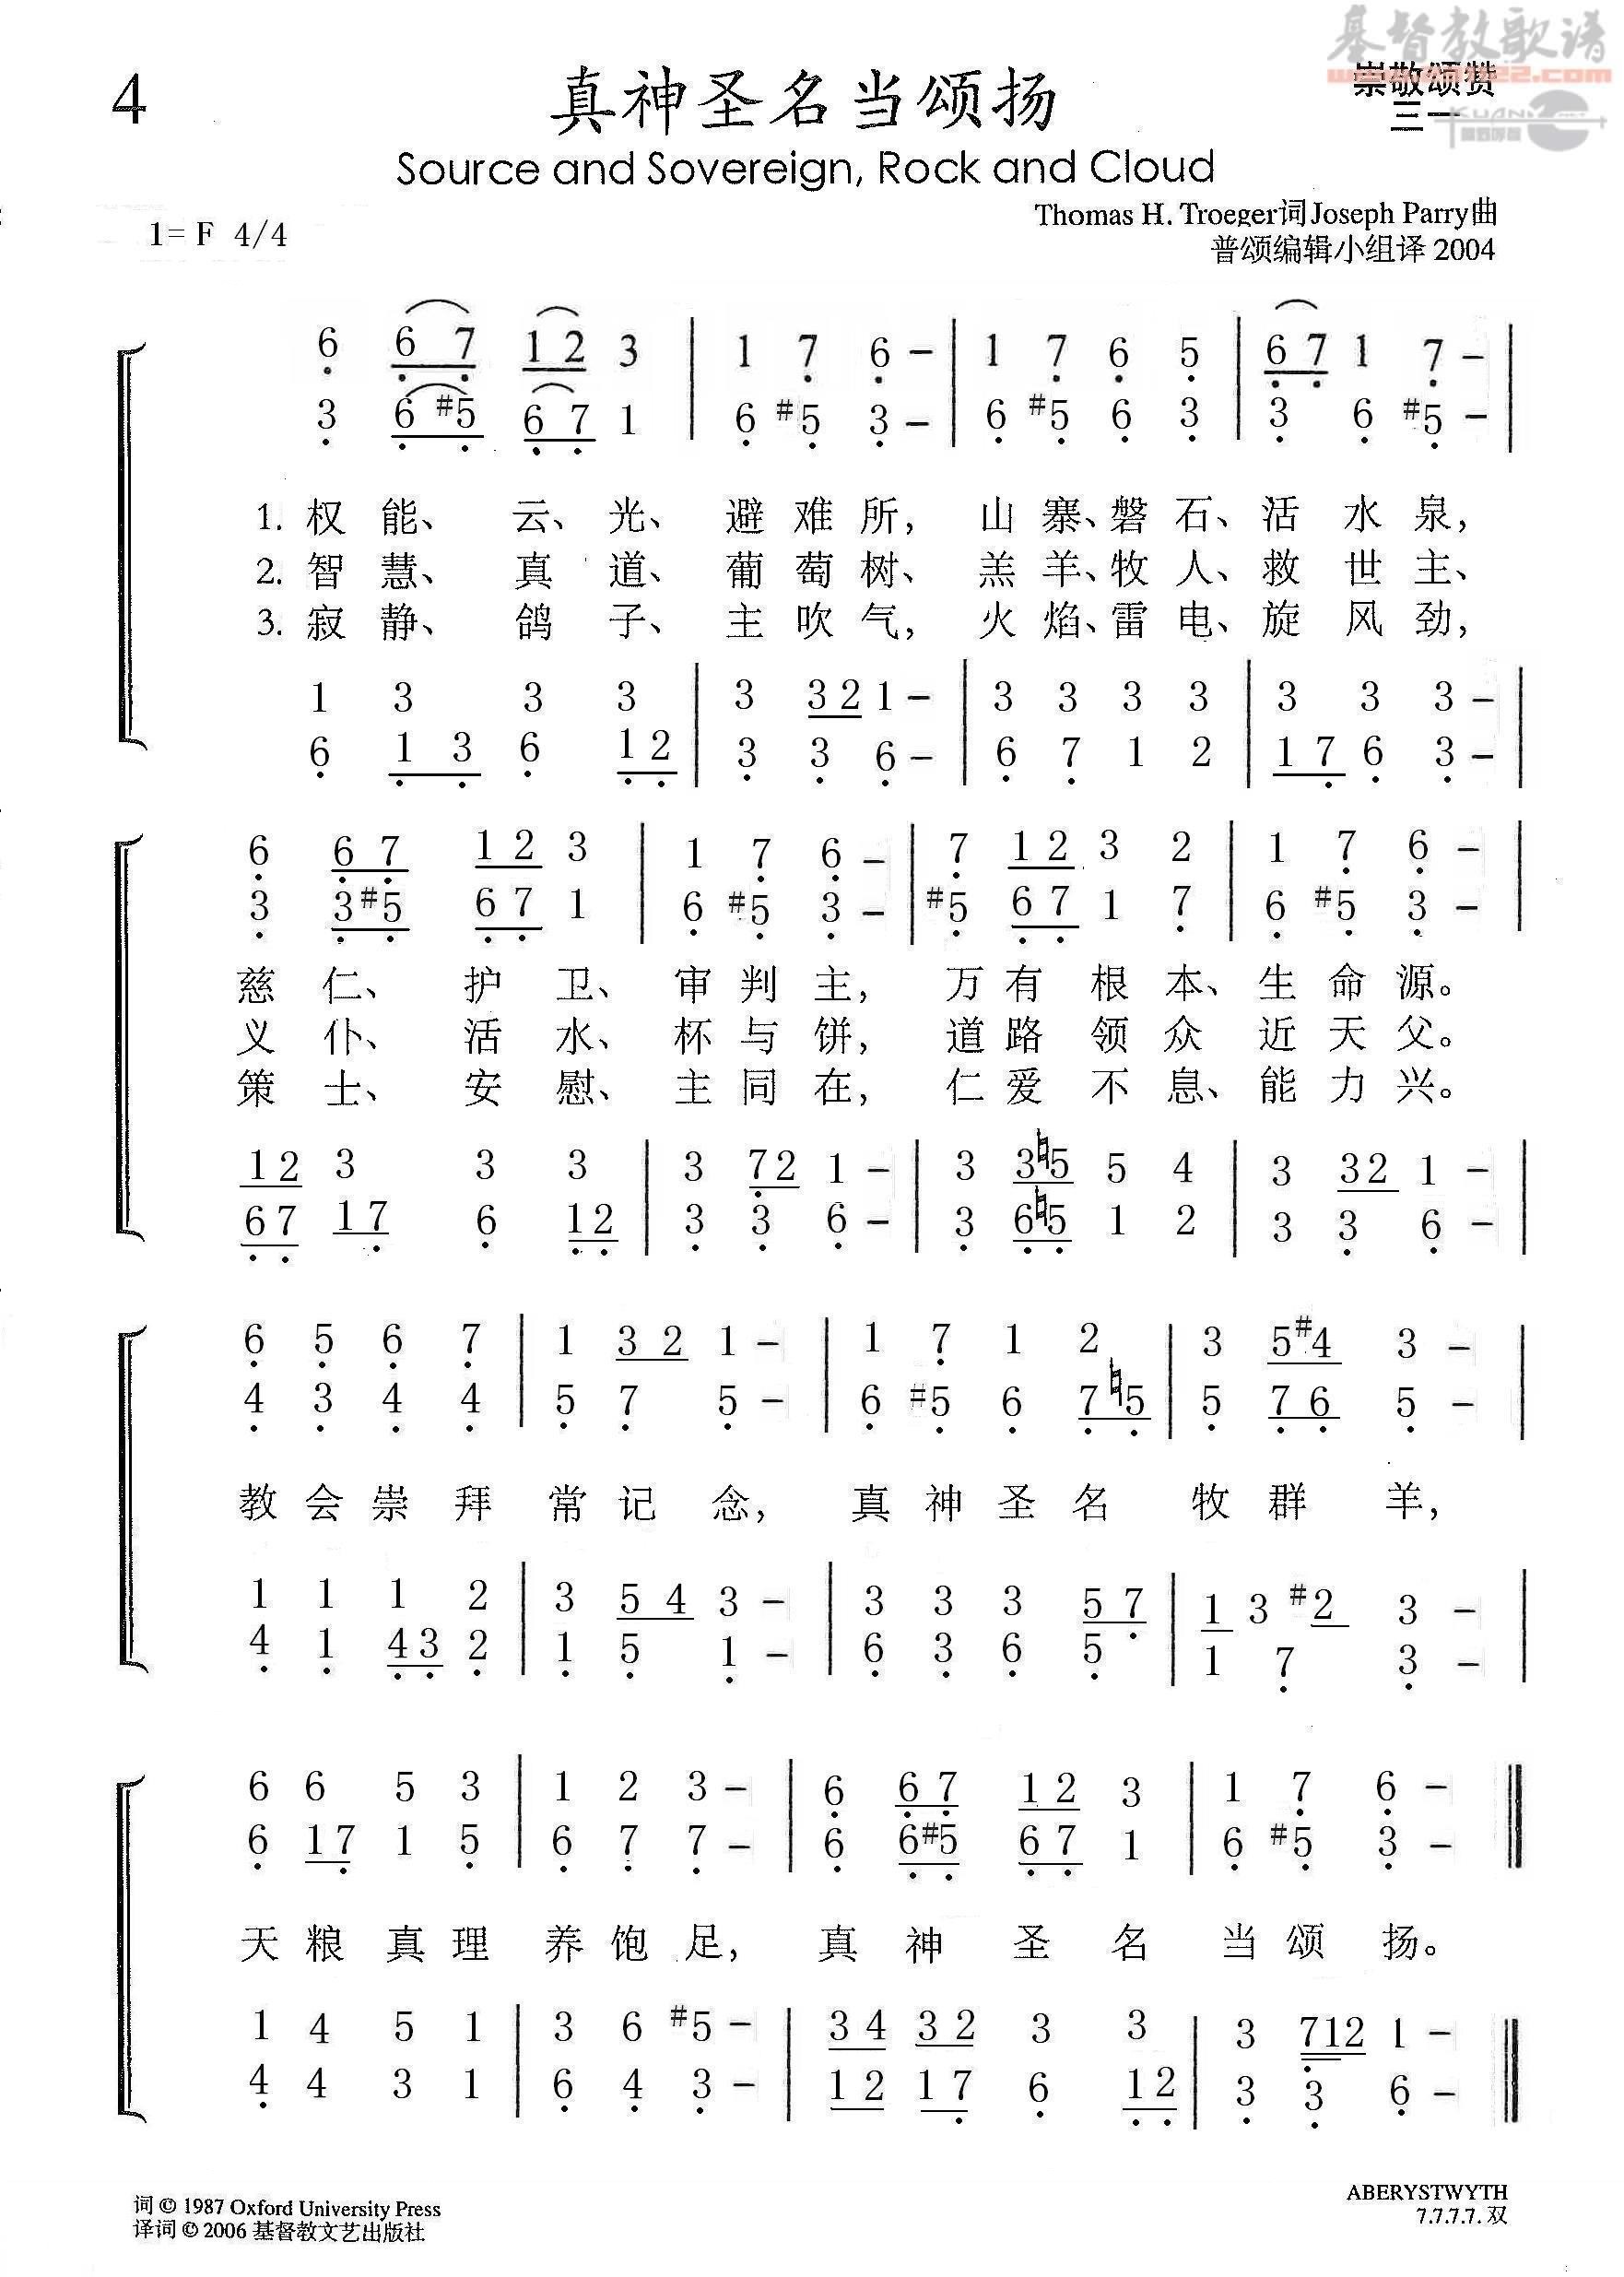 基督教歌谱
4
真神圣名当颂扬
崇敬颂赞
三一
Source and Sovereign, Rock and Cloud
Thomas H. Troeger词Joseph Parry曲
1= F 4/4
普颂编辑小组译 2004
6 6 7 1 2 3 | 1 7 6 - | 1 7 6 5 | 6 7 1 7 - |
3 6 #5 6 7 1 | 6 #5 3 - | 6 #5 6 3 | 3 6 #5 - |
1. 权能、云、光、避难所，山寨、磐石、活水泉，
2. 智慧、真道、葡萄树、羔羊、牧人、救世主、
3. 寂静、鸽子、主吹气，火焰、雷电、旋风劲，
1 3 3 3 | 3 3 2 1 - | 3 3 3 3 | 3 3 3 - |
6 1 3 6 1 2 | 3 3 6 - | 6 7 1 2 | 1 7 6 3 - |
6 6 7 1 2 3 | 1 7 6 - | 7 1 2 3 2 | 1 7 6 - |
3 3 #5 6 7 1 | 6 #5 3 - | #5 6 7 1 7 | 6 #5 3 - |
慈仁、护卫、审判主，万有根本、生命源。
义仆、活水、杯与饼，道路领众近天父。
策士、安慰、主同在，仁爱不息、能力兴。
1 2 3 3 3 | 3 7 2 1 - | 3 3 ♮5 5 4 | 3 3 2 1 - |
6 7 1 7 6 1 2 | 3 3 6 - | 3 6 ♮5 1 2 | 3 3 6 - |
6 5 6 7 | 1 3 2 1 - | 1 7 1 2 | 3 5 #4 3 - |
4 3 4 4 | 5 7 5 - | 6 #5 6 7 ♮5 | 5 7 6 5 - |
教会崇拜常记念，真神圣名牧群羊，
1 1 1 2 | 3 5 4 3 - | 3 3 3 5 7 | 1 3 #2 3 - |
4 1 4 3 2 | 1 5 1 - | 6 3 6 5 | 1 7 3 - |
6 6 5 3 | 1 2 3 - | 6 6 7 1 2 3 | 1 7 6 - ‖
6 1 7 1 5 | 6 7 7 - | 6 6 #5 6 7 1 | 6 #5 3 - ‖
天粮真理养饱足，真神圣名当颂扬。
1 4 5 1 | 3 6 #5 - | 3 4 3 2 3 3 | 3 7 1 2 1 - ‖
4 4 3 1 | 6 4 3 - | 1 2 1 7 6 1 2 | 3 3 6 - ‖
词 © 1987 Oxford University Press
ABERYSTWYTH
译词 © 2006 基督教文艺出版社
7.7.7.7. 双